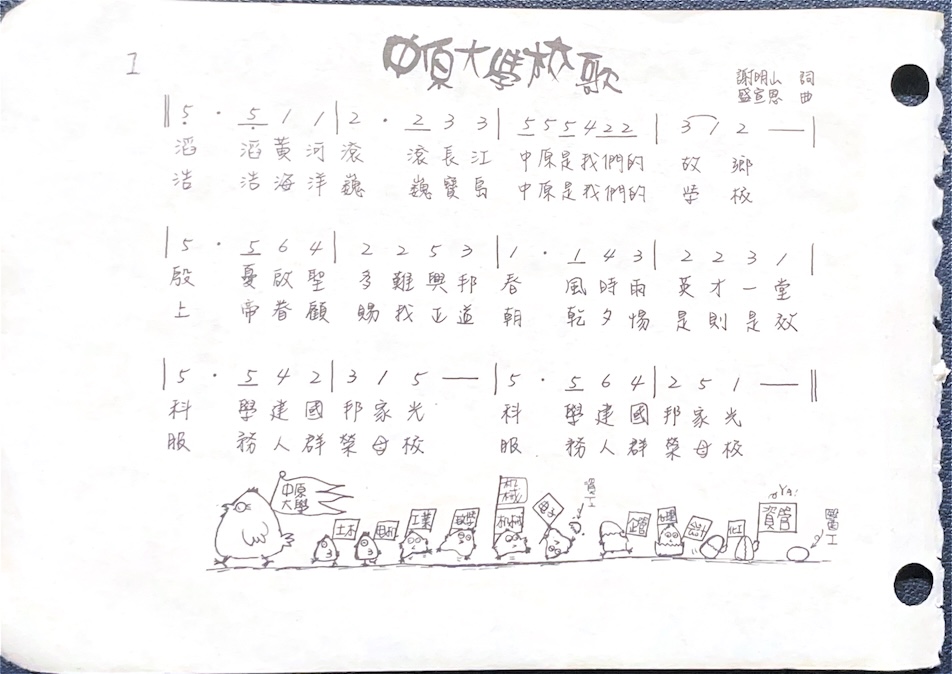 1
中原大學校歌
謝明山 詞
盛宣恩 曲
‖5 · 5 1 1|2 · 2 3 3|5 5 5 4 2 2|3 1 2 —|
滔 滔黃河滾 滾長江 中原是我們的 故鄉
浩 浩海洋巍 巍寶島 中原是我們的 學校
|5 · 5 6 4|2 2 5 3|1 · 1 4 3|2 2 3 1|
殷 憂啟聖 多難興邦 春 風時雨 英才一堂
上 帝眷顧 賜我正道 朝 乾夕惕 是則是效
|5 · 5 4 2|3 1 5 —|5 · 5 6 4|2 5 1 —‖
科 學建國邦家光 科 學建國邦家光
服 務人群榮母校 服 務人群榮母校
中原
大學
土木
工業
數學
機械
電子
資工
企管
心理
化工
Ya!
資管
電工